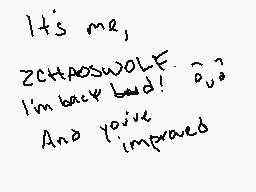 It's me,
ZCHAOSWOLF.
I'm back!
And you've
improved